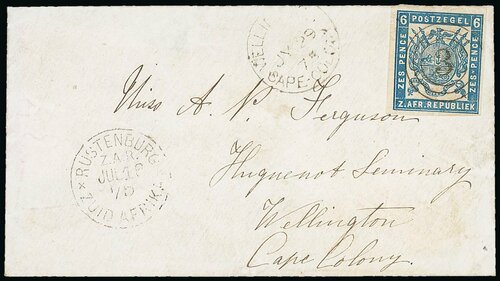 WELLIN
JY 29
7
CAPE COLONY
6 POSTZEGEL 6
ZES PENCE
ZES PENCE
Z. AFR. REPUBLIEK
Miss A. P. Ferguson
Huguenot Seminary
Wellington
Cape Colony.
RUSTENBURG
Z.A.R.
JUL 16
75
ZUID AFRIKA